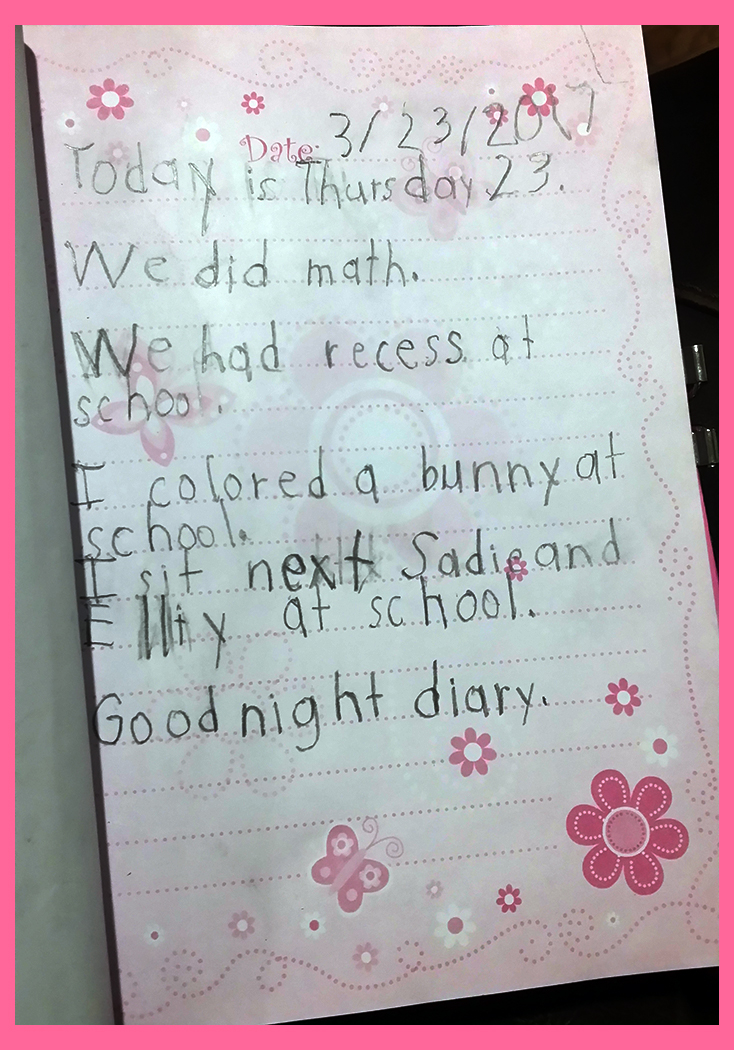 Date: 3/23/2017
Today is Thursday 23.
We did math.
We had recess at
school.
I colored a bunny at
school.
I sit next Sadie and
Elliy at school.
Good night diary.